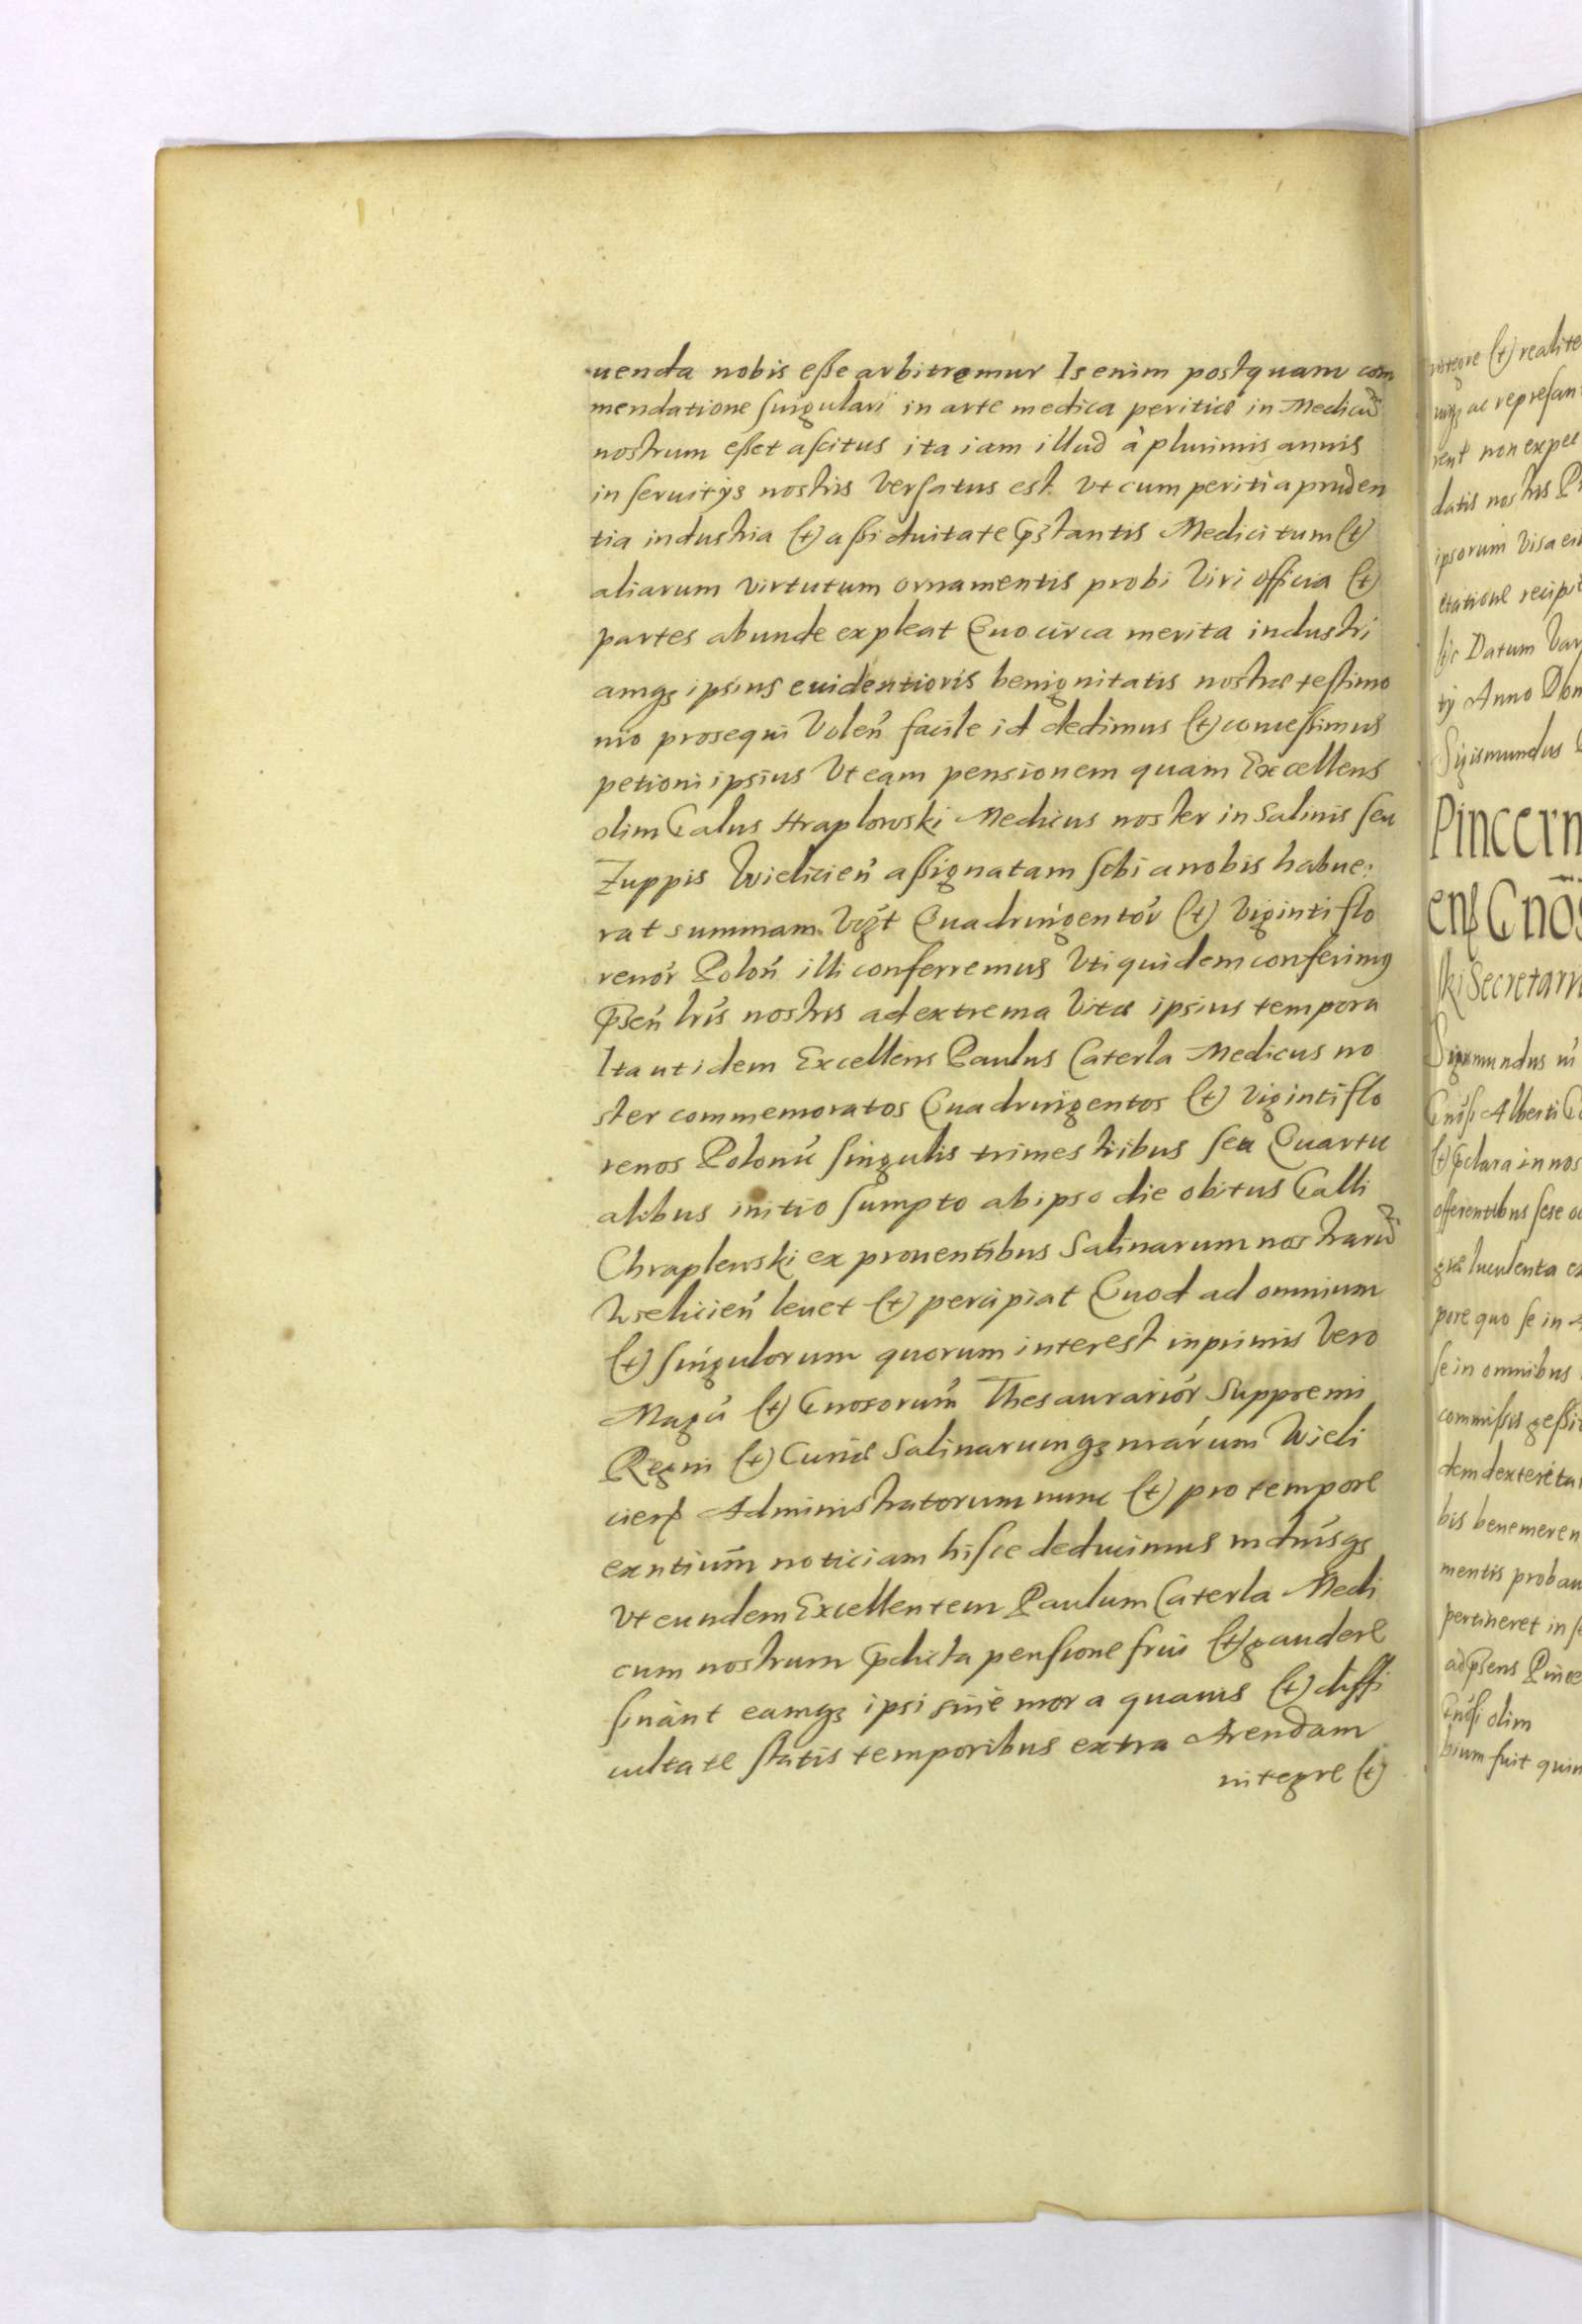 uenda nobis eße arbitremur Is enim postquam com
mendatione singulari in arte medica peritiæ in Medicũ
nostrum eßet ascitus ita iam illud à plurimis annis
in seruitijs nostris versatus est vt cum peritia pruden
tia industria (et) aßiduitate p̃stantis Medici tum (et)
aliarum virtutum ornamentis probi Viri officia (et)
partes abunde expleat Quocirca merita industri
amqȝ ipsius euidentioris benignitatis nostræ testimo
nio prosequi Volen̄ facile id dedimus (et) conceßimus
petioni ipsius Vt eam pensionem quam Excellens
olim Galus Hraplowski Medicus noster in Salinis seu
Zuppis Wielicien̄ aßignatam sibi a nobis habue:
rat summam Vz̃t Quadringentor̄ (et) Viginti flo
renor̄ Polon̄ illi conferremus Vti quidem conferimꝰ
p̃sen̄ lr̄is nostris ad extrema Vitæ ipsius tempora
Ita ut idem Excellens Paulus Caterla Medicus no
ster commemoratos Quadringentos (et) Viginti flo
renos Polonū singulis trimestribus seu Quartu
alibus initio sumpto ab ipso die obitus Galli
Chraplewski ex prouentibus Salinarum nostrarũ
Wielicien̄ leuet (et) percipiat Quod ad omnium
(et) singulorum quorum interest inprimis Vero
Magū (et) Gnosorum̄ Thesaurarior̄ Suppremi
Regni (et) Curiæ Salinarumqȝ nrārum Wieli
cien̄ Administratorum nunc (et) pro tempore
exntium̄ noticiam hisce deducimus m̄dmūsqȝ
Vt eundem Excellentem Paulum Caterla Medi
cum nostrum p̃dicta pensione frui (et) gaudere
sinant eamqȝ ipsi sine mora quauis (et) diffi
cultate statis temporibus extra Arendam
integre (et)
integre (et) realite
ac represan
rent non expec
datis nostris
ipsorum Visa
recipi
Datum Var
Anno Dom
Sigismundus
Pincern
ens Gnōs
ski Secretarii
Sigismundus
Alberti
(et) p̃clara in nos
offerentibus sese
luculenta
pore quo se in
se in omnibus
commißis geßit
dem dexterita
bis benemeren
mentis probau
pertineret in
ad p̃sens Pince
olim
fuit quin